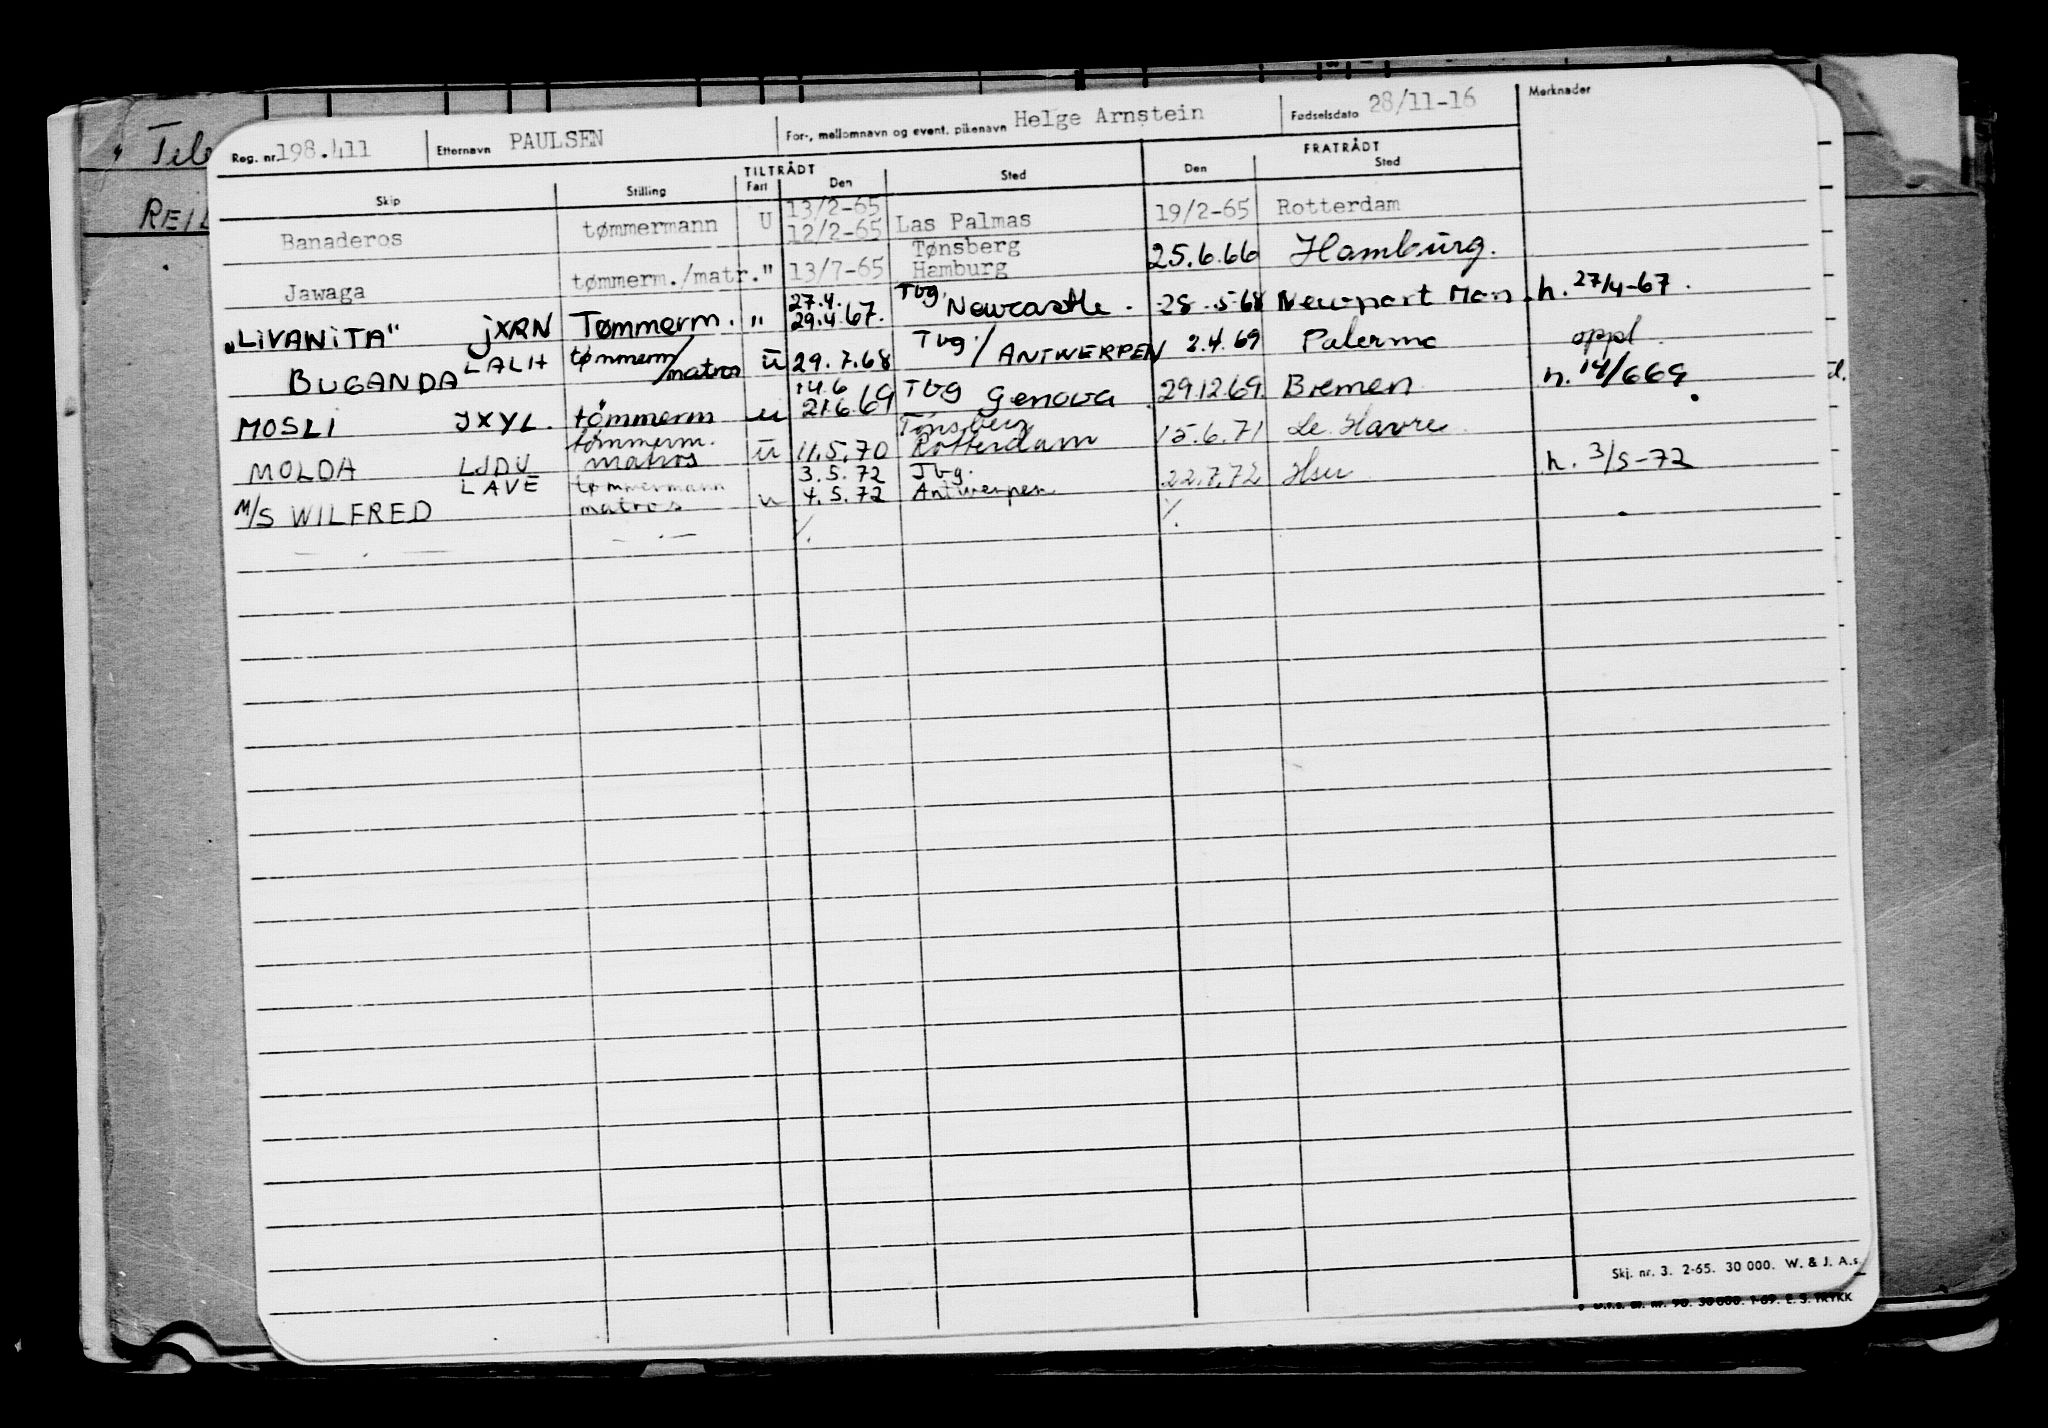 Tele
REIL
Reg. nr. 198.411 Etternavn PAULSEN For-, mellomnavn og event. pikenavn Helge Arnstein Fødselsdato 28/11-16 Merknader
TILTRÅDT FRATRÅDT
Skip Stilling Fart Den Sted Den Sted
13/2-65
Banaderos tømmermann U 12/2-65 Las Palmas 19/2-65 Rotterdam
Tønsberg
Jawaga tømmerm./matr. " 13/7-65 Hamburg 25.6.66 Hamburg.
27.4.
"LIVANITA" JXRN Tømmerm. " 29.4.67. Tbg. Newcastle. 28.5.68 Newport Mon. h. 27/4-67.
BUGANDA LALH tømmerm/matros u 29.7.68 Tbg./ANTWERPEN 2.4.69 Palermo oppl.
14.6
MOSLI JXYL. tømmerm u 21.6.69 Tbg Genova 29.12.69. Bremen h. 14/6 69.
tømmerm. Tønsberg
MOLDA LJDV matros u 11.5.70 Rotterdam 15.6.71 Le Havre
LAVE tømmermann 3.5.72 Tbg.
M/S WILFRED matros u 4.5.72 Antwerpen 22.7.72 h. 3/5-72
d.
Skj. nr. 3. 2-65. 30 000. W. & J. A.s.
30 000. 1-69. E. S. TRYKK